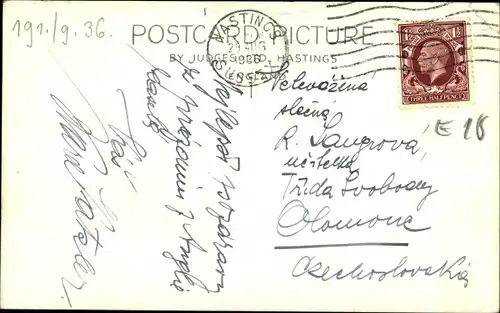 191./9. 36.
POSTCARD PICTURE
BY JUDGES LTD, HASTINGS
HASTINGS
29 AUG
1936
ENGLAND
THREE HALFPENCE
E 18
Velevážená
slečna
R. Langrová,
učitelka
Třída Svobody
Olomouc
Czechoslovakia
Nejlepší pozdravy
z prázdnin z Anglie
Váš